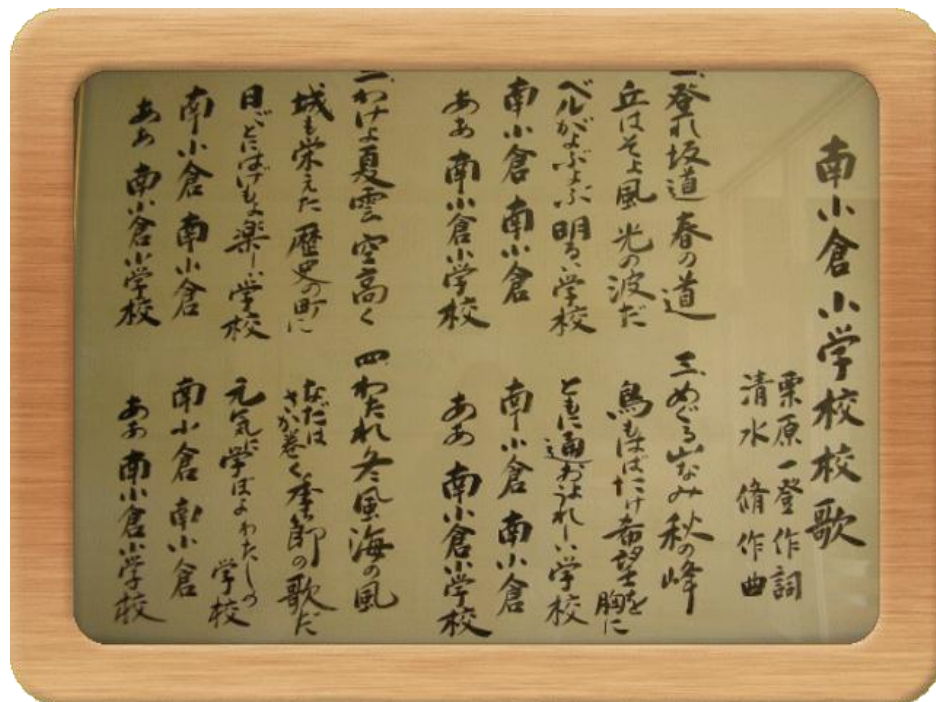 南小倉小学校校歌
栗原一登作詞
清水 脩作曲
一、登れ坂道 春の道
丘はそよ風 光の波だ
ベルがよぶよぶ 明るい学校
南小倉 南小倉
ああ 南小倉小学校
二、わけよ夏雲 空高く
城も栄えた 歴史の町に
日ごとにはげもよ 楽しい学校
南小倉 南小倉
ああ 南小倉小学校
三、めぐる山なみ 秋の峰
鳥もはばたけ 希望を胸に
ともに通およ うれしい学校
南小倉 南小倉
ああ 南小倉小学校
四、わたれ冬風 海の風
なだはさか巻く 季節の歌だ
元気に学ぼよ わたしの学校
南小倉 南小倉
ああ 南小倉小学校